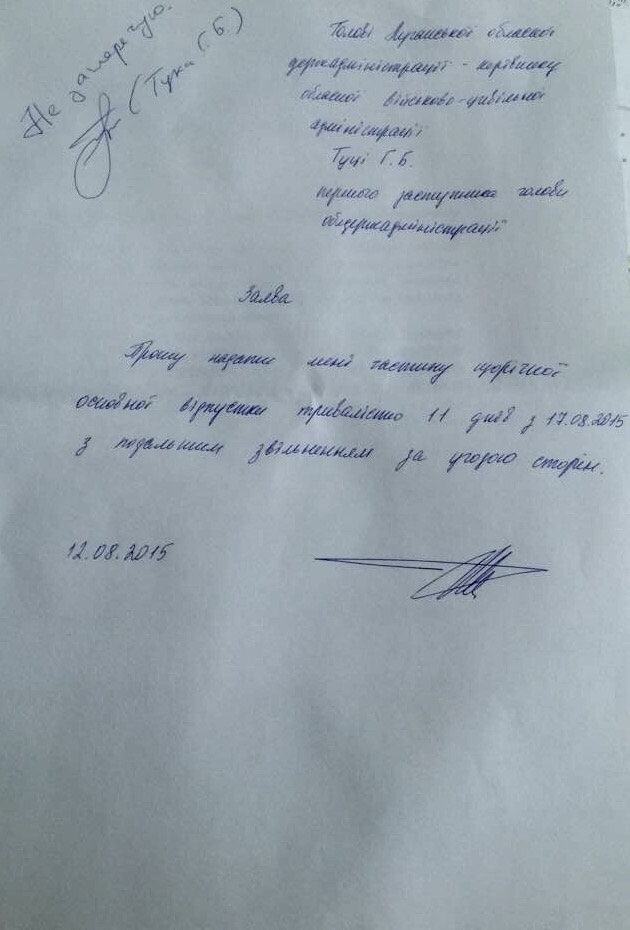 Не заперечую.
(Тука Г.Б.)
Голові Луганської обласної
держадміністрації - керівнику
обласної військово-цивільної
адміністрації
Туці Г.Б.
першого заступника голови
облдержадміністрації
Заява
Прошу надати мені частину щорічної
основної відпустки тривалістю 11 днів з 17.08.2015
з подальшим звільненням за угодою сторін.
12.08.2015